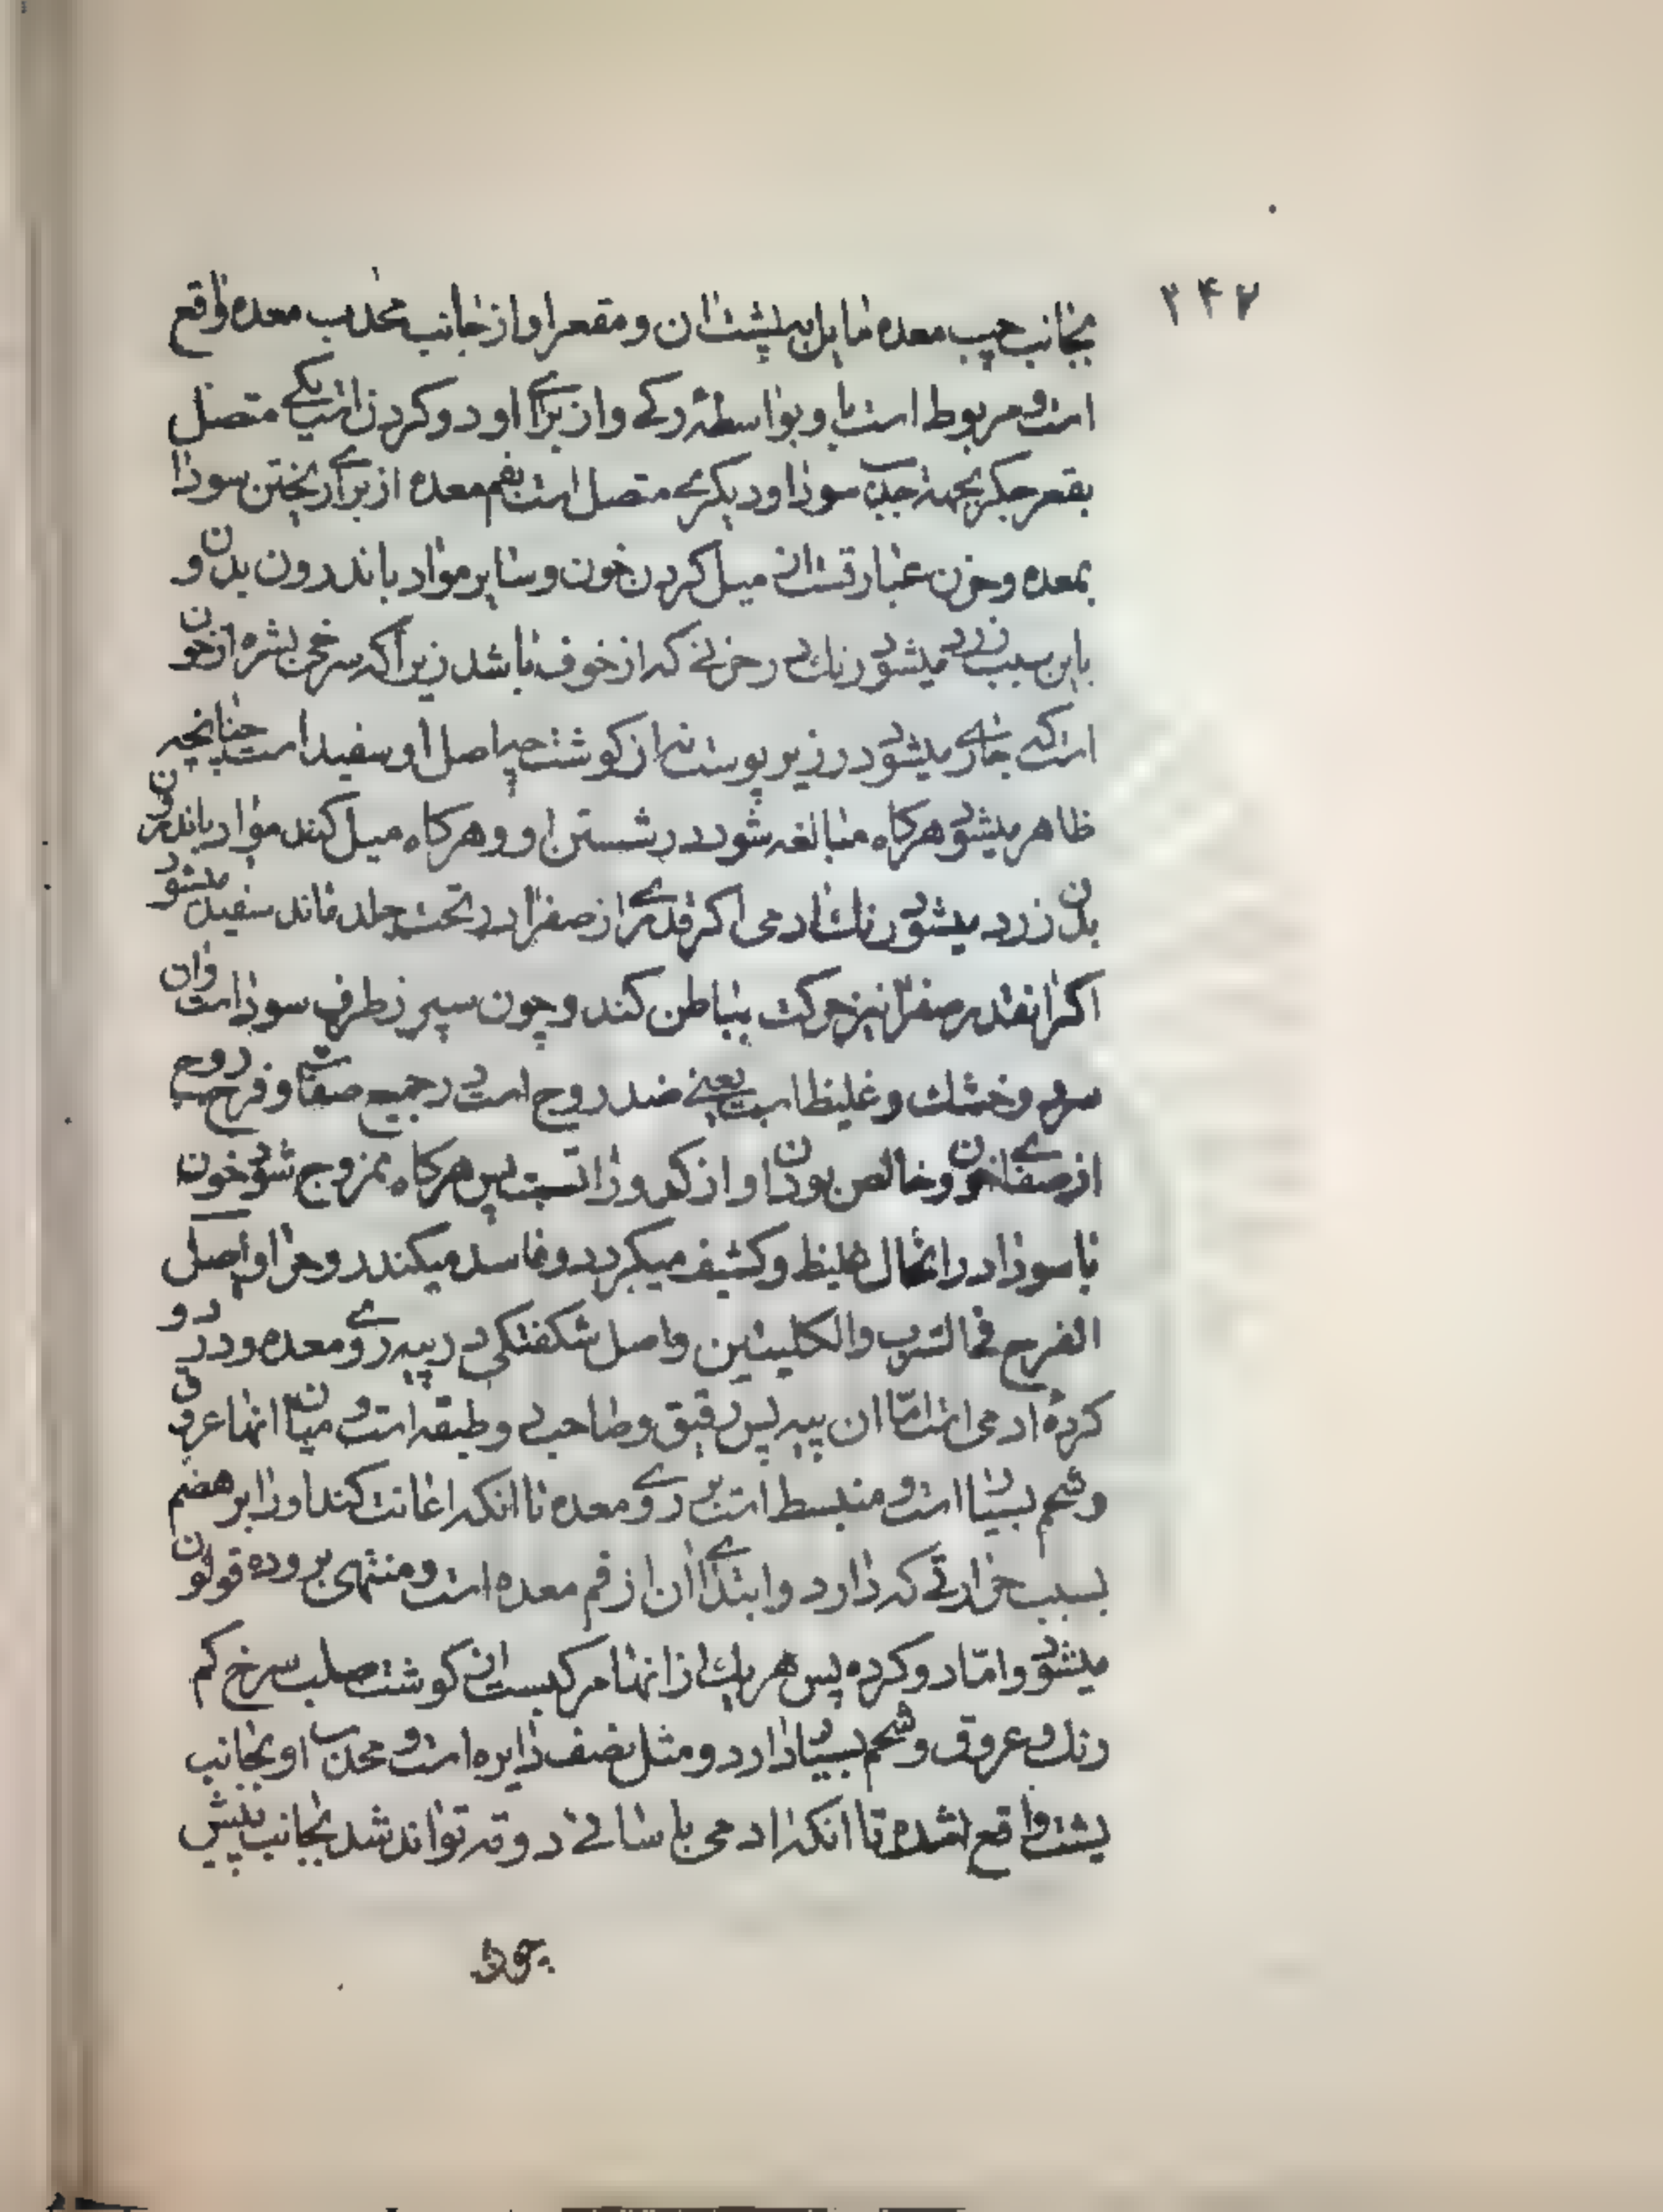 ۲۴۲
بجانب چپ معده مایل به پشت آن و مقعر او از جانب محدب معده واقع
است و مربوط است با و بواسطه رکی و از برای او دو کردنست یکی متصل
بقعر جکر بجهة جذب سودا و دیکری متصل است بفم معده از برای ریختن سودا
بمعده و حزن عبارتست از میل کردن خون و سایر مواد باندرون بدن و
باین سبب زرد میشود رنك در حزنی که از خوف باشد زیرا که سرخی بشره از خون
است که جاری میشود در زیر پوست نه از کوشت چه اصل او سفید است چنانچه
ظاهر میشود هرکاه مبالغه شود در شستن او و هرکاه میل کند مواد باندرون
بدن زرد میشود رنك ادمی اکر قدری از صفرا در تحت جلد ماند سفید میشود
اکر انقدر صفرا نیز حرکت بباطن کند و چون سپرز ظرف سوداست وان
سرد و خشك و غلیظ است یعنی ضد روح است در جمیع صفات و فرح روح
از صفای خون و خالص بودن او از کدورا تست پس هرکاه ممزوج شود خون
با سودا در انحال غلیظ و کثیف میکردد و فاسد میکند روح را و اصل
الفرح فی الثرب والکلیتین و اصل شکفتکی در پیه روی معده و در دو
کردهٔ ادمی است امّا ان پیه پس رقیق و صاحب دو طبقه است و میان انها عروق
و شحم بسیار است و منبسط است بر روی معده تا انکه اعانت کند او را بر هضم
بسبب حرارتی که دارد و ابتدای آن از فم معده است و منتهی بروده قولون
میشود و امّا دو کرده پس هر یك از انها مرکبست از کوشت صلب سرخ کم
رنك و عروق و شحم بسیار دارد و مثل نصف دایره است و محدب او بجانب
پشت واقع شده تا انکه ادمی باسانی دو ته تواند شد بجانب پیش